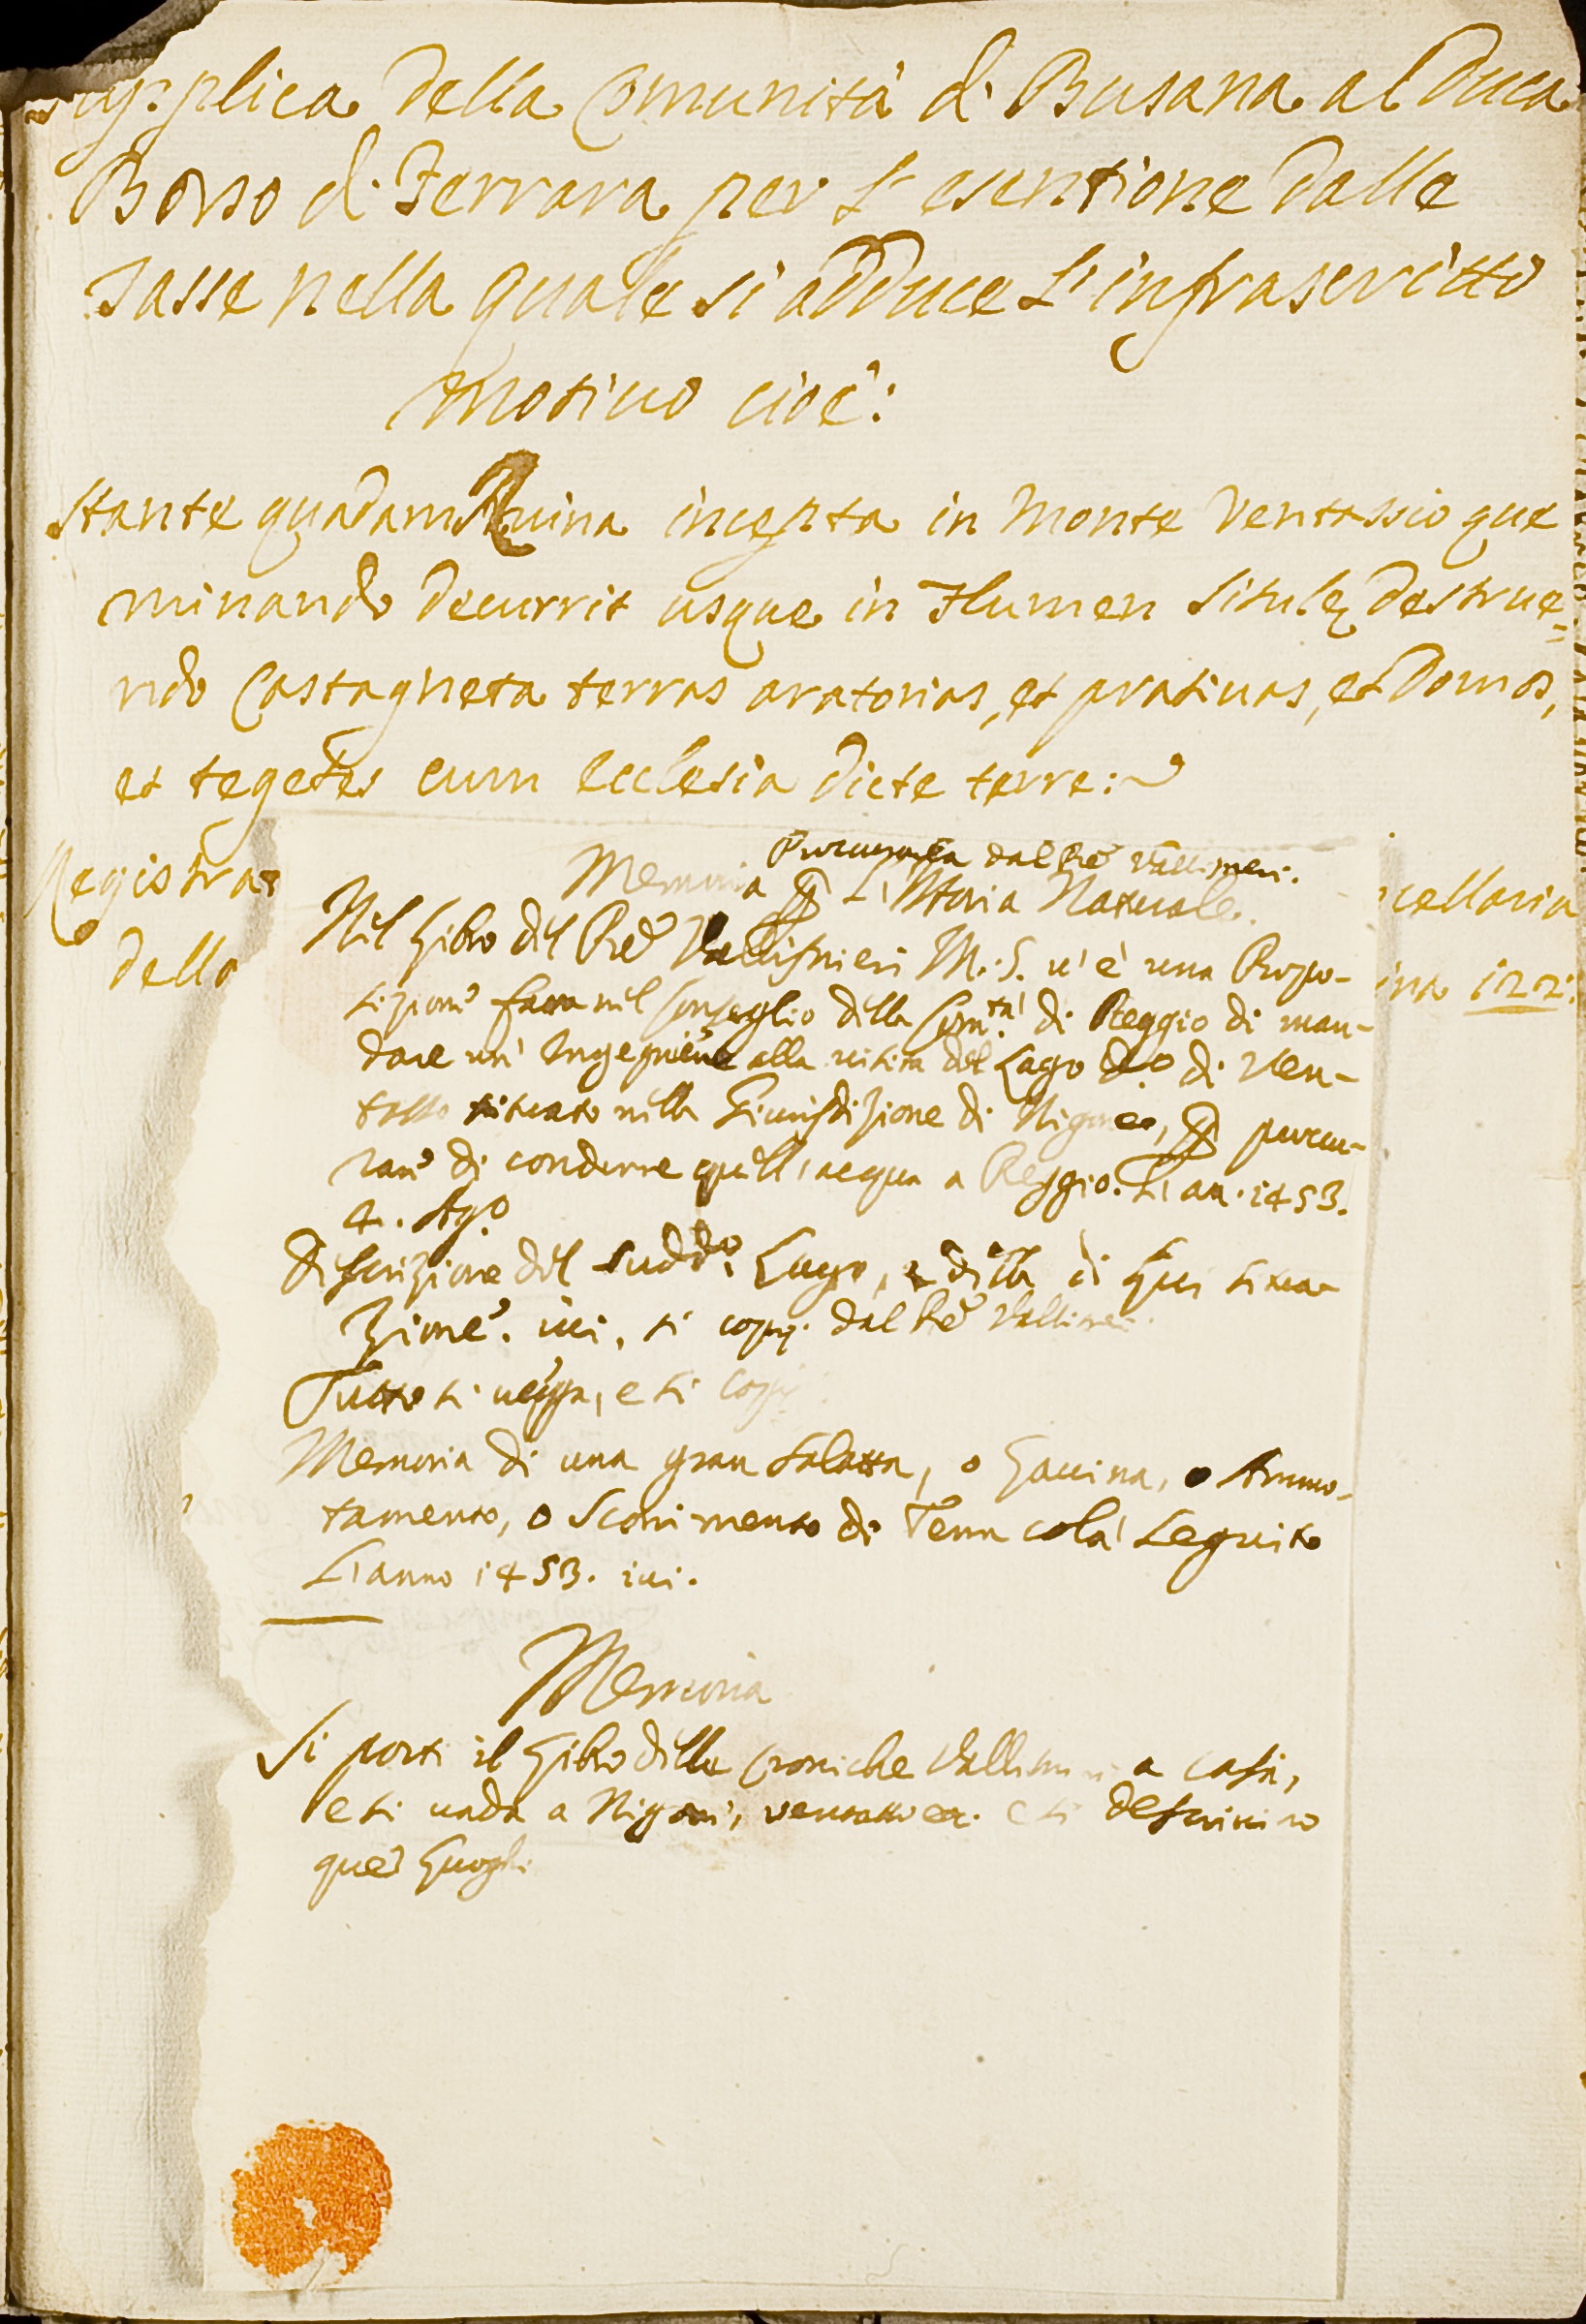 Supplica della Comunità di Busana al Duca
Borso di Ferrara per l'esentione dalle
Tasse nella quale si adduce l'infrascritto
motiuo cioè:
Stante quadam Ruina incepta in Monte Ventassio que
minando decurrit usque in Flumen Situle destrue=
ndo Castagneta terras aratorias, et pratiuas, et Domos,
et tegetes cum Ecclesia dicte terre:
Registra cellaria
della ina 122:
dal Re Vallisneri.
Memoria L'Istoria Naturale.
Nel Libro del Re Vallisnieri M.S. u'è una Propo-
sizione fatta nel Conseglio della Com.tà di Reggio di man-
dare un' Ingegniere alla uisita del Lago d.o di Ven-
tasso situato nella Giurisdizione di Nigone, procu-
rare di condurre quell'acqua a Reggio. L'an. 1453.
4. Ag.o
Descrizione del sudd.o Lago, e della di Lui situa-
zione. iui, si dal Re Vallisneri.
Tutto si uegga, e si copj
Memoria di una gran Salatta, o Lauina, o Ammo-
tamento, o Scorrimento di Terra colà seguito
L'anno 1453. iui.
Memoria
Si porti il Libro delle Croniche Vallisneri a casa,
e si uada a Nigone, uentasso e si descriuino
que' Luoghi